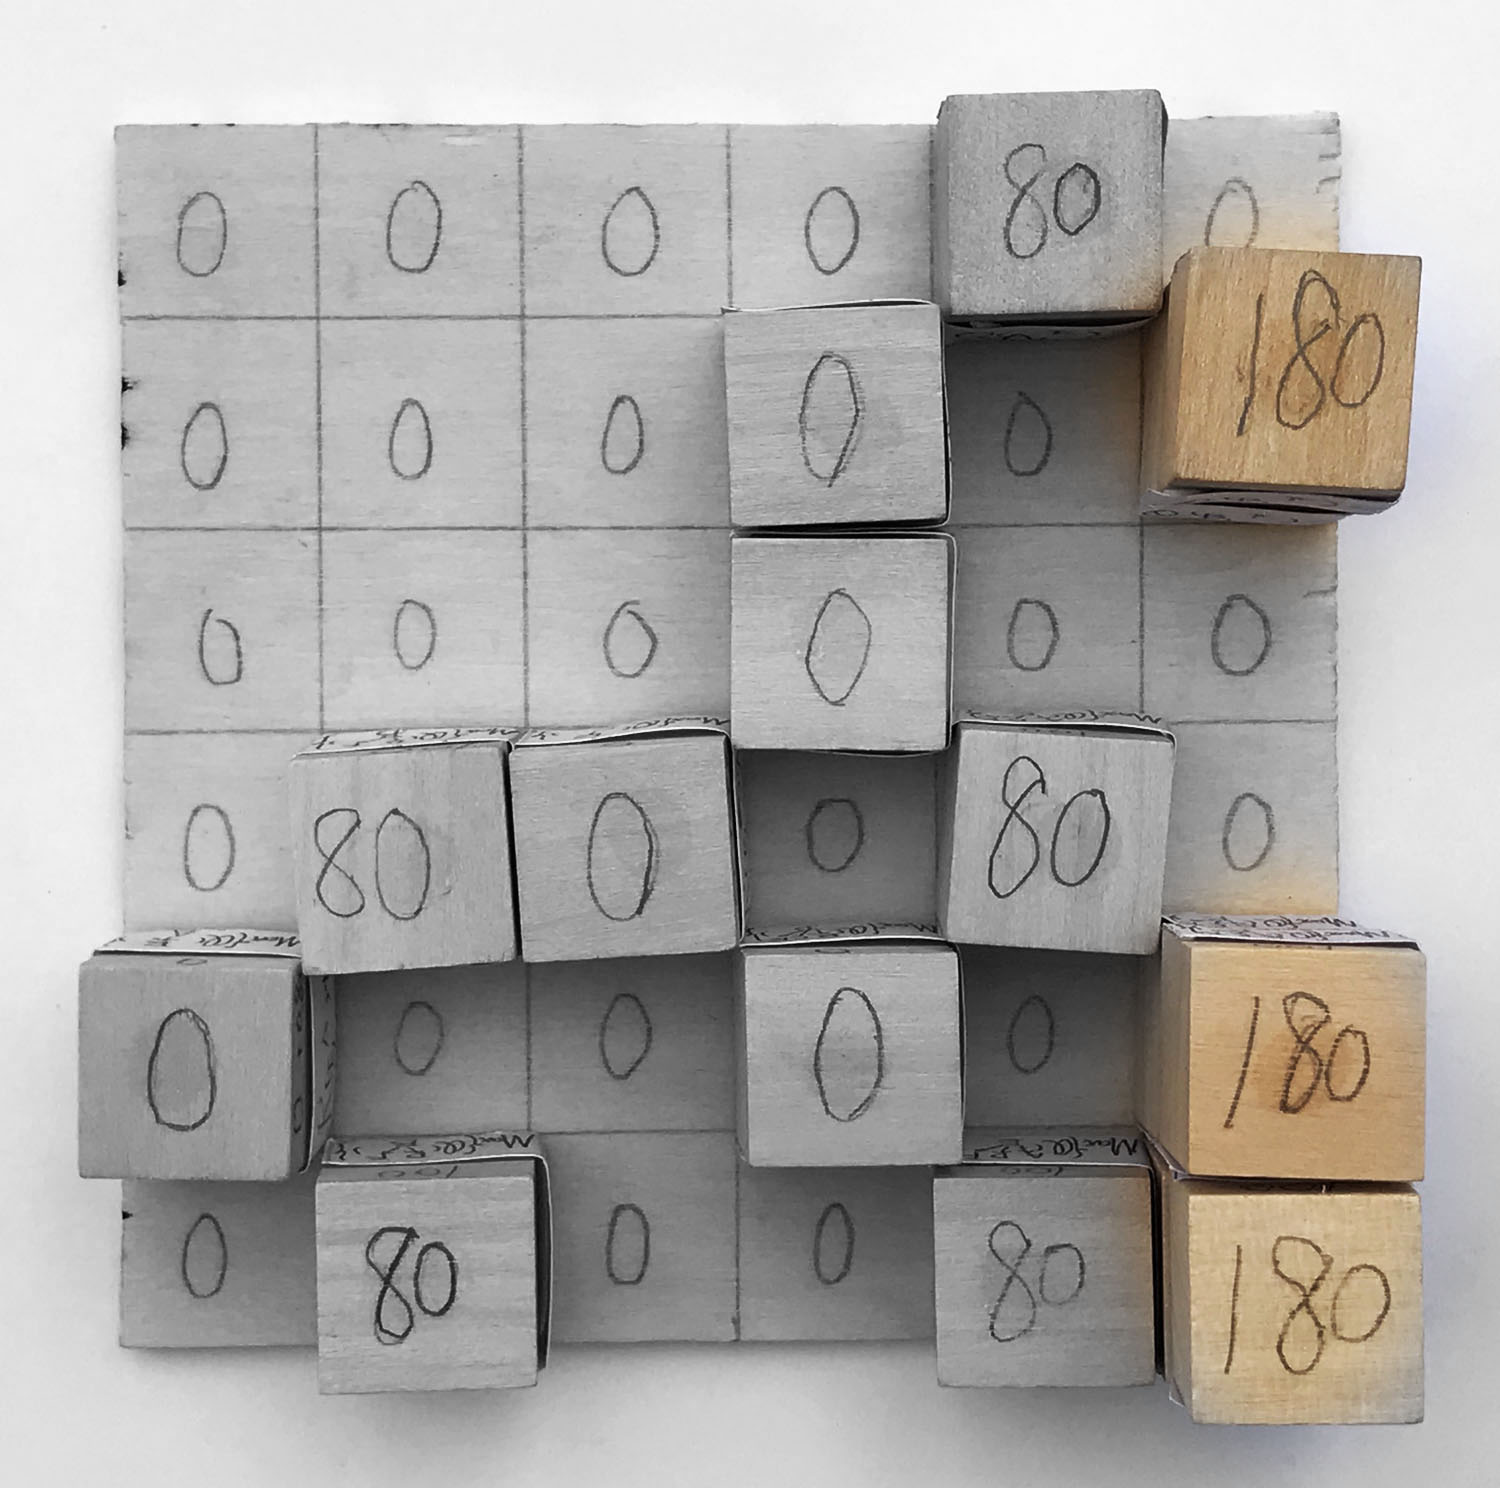 0 0 0 0 80 0
0 0 0 0 0 180
0 0 0 0 0 0
0 80 0 0 80 0
0 0 0 0 0 180
0 80 0 0 80 180